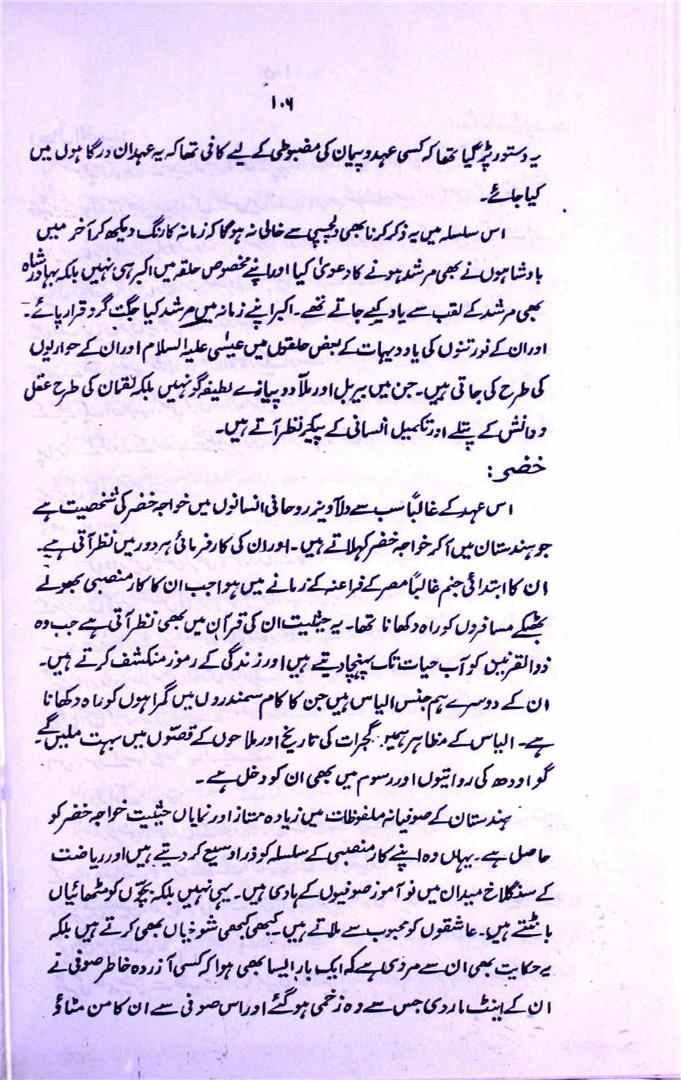 ۱۰۶
یہ دستور پڑ گیا تھا کہ کسی عہد و پیمان کی مضبوطی کے لیے کافی تھا کہ یہ عہد ان درگاہوں میں
کیا جائے۔
اس سلسلہ میں یہ ذکر کرنا بھی دلچسپی سے خالی نہ ہوگا کہ زمانہ کا رنگ دیکھ کر آخر میں
بادشاہوں نے بھی مرشد ہونے کا دعویٰ کیا اور اپنے مخصوص حلقہ میں اکبر ہی نہیں بلکہ بہادر شاہ
بھی مرشد کے لقب سے یاد کیے جاتے تھے۔ اکبر اپنے زمانہ میں مرشد کیا جگت گرو قرار پائے۔
اور ان کے نورتنوں کی یاد دیہات کے بعض حلقوں میں عیسٰی علیہ السلام اور ان کے حواریوں
کی طرح کی جاتی ہیں۔ جن میں بیربل اور ملّا دو پیازے لطیفہ گو نہیں بلکہ لقمان کی طرح عقل
و دانش کے پتلے اور تکمیل انسانی کے پیکر نظر آتے ہیں۔
خضر:
اس عہد کے غالباً سب سے دلآویز روحانی انسانوں میں خواجہ خضر کی شخصیت ہے
جو ہندستان میں آ کر خواجہ خضر کہلاتے ہیں۔ اور ان کی کارفرمائی ہر دور میں نظر آتی ہے۔
ان کا ابتدائی جنم غالباً مصر کے فراعنہ کے زمانے میں ہوا جب ان کا کار منصبی بھولے
بھٹکے مسافروں کو راہ دکھانا تھا۔ یہ حیثیت ان کی قرآن میں بھی نظر آتی ہے جب وہ
ذوالقرنین کو آب حیات تک پہنچا دیتے ہیں اور زندگی کے رموز منکشف کرتے ہیں۔
ان کے دوسرے ہم جنس الیاس ہیں جن کا کام سمندروں میں گمراہوں کو راہ دکھانا
ہے۔ الیاس کے مظاہر ہمیں گجرات کی تاریخ اور ملاحوں کے قصّوں میں بہت ملیں گے۔
گو اودھ کی روایتوں اور رسوم میں بھی ان کو دخل ہے۔
ہندستان کے صوفیانہ ملفوظات میں زیادہ ممتاز اور نمایاں حیثیت خواجہ خضر کو
حاصل ہے۔ یہاں وہ اپنے کار منصبی کے سلسلہ کو ذرا وسیع کر دیتے ہیں اور ریاضت
کے سنگلاخ میدان میں نو آموز صوفیوں کے ہادی ہیں۔ یہی نہیں بلکہ بچّوں کو مٹھائیاں
بانٹتے ہیں۔ عاشقوں کو محبوب سے ملاتے ہیں۔ کبھی کبھی شوخیاں بھی کرتے ہیں بلکہ
یہ حکایت بھی ان سے مروی ہے کہ ایک بار ایسا بھی ہوا کہ کسی آزردہ خاطر صوفی نے
ان کے اینٹ مار دی جس سے وہ زخمی ہو گئے اور اس صوفی سے ان کا من مٹاؤ